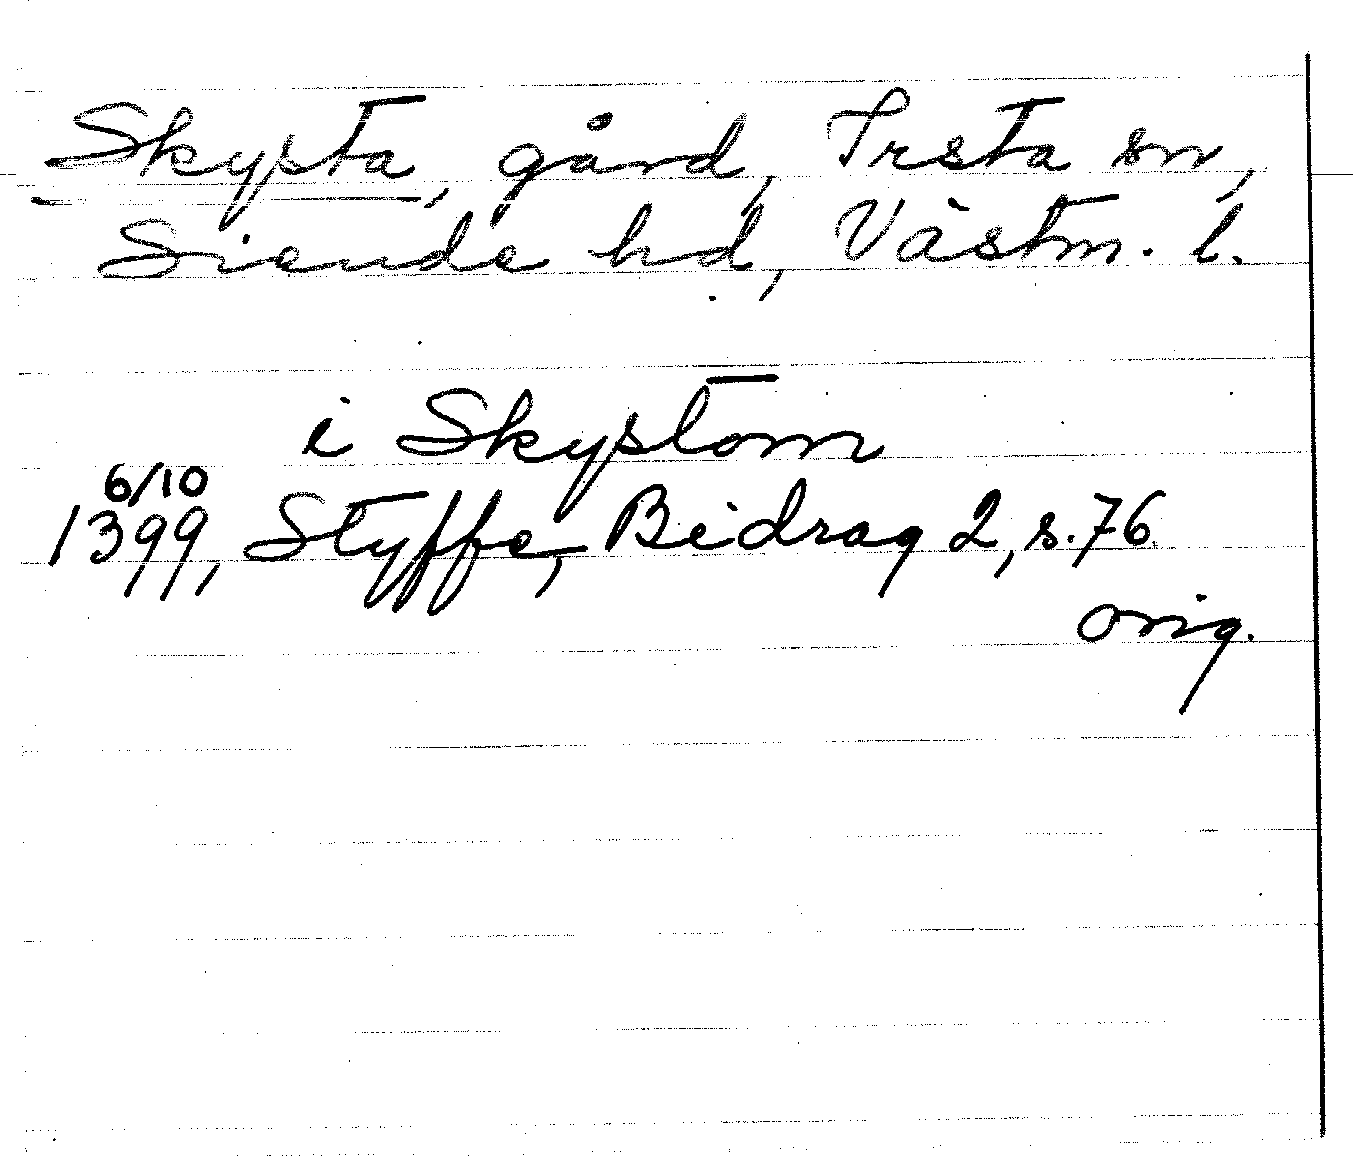 Skysta, gård, Irsta sn,
Siende hd, Västm. l.
i Skystom
6/10
1399, Styffe, Bidrag 2, s. 76.
orig.